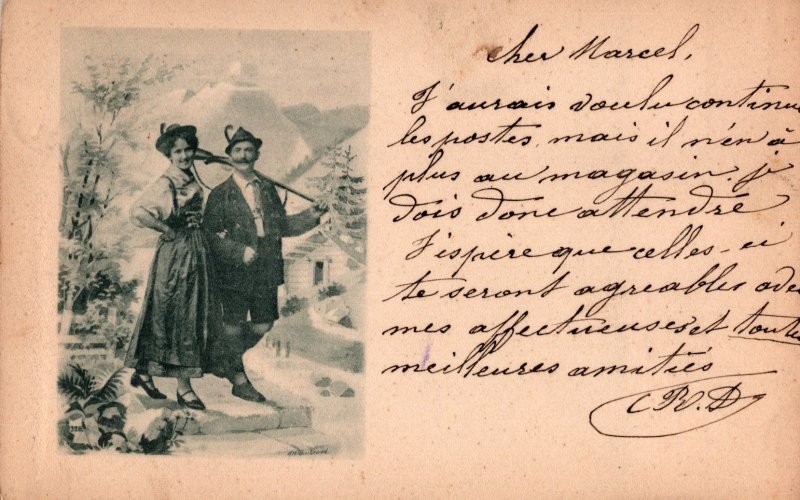 cher Marcel,
J'aurais voulu continue
les postes, mais il n'en à
plus au magasin. je
dois donc attendre
J'espère que celles-ci
te seront agreables
mes affectueuses et toute
meilleures amitiés
328